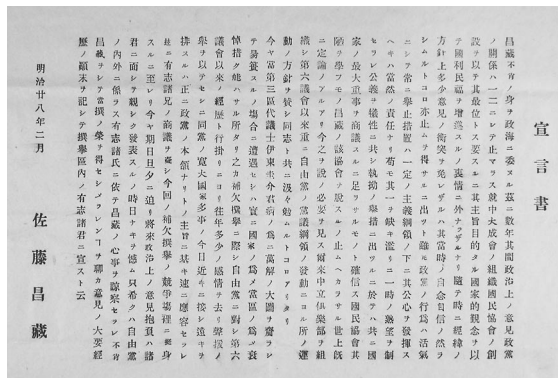 宣言書
昌蔵不肖ノ身ヲ政海ニ委ヌル茲ニ数年其間政治上ノ意見政黨
ノ関係ハ一二ニシテ止マラス就中大成會ノ組織國民協會ノ創
設ヲ以テ其最位トス要スルニ其主旨目的タル國家的觀念ヲ以
テ國利民福ヲ増進スルノ衷情ニ外ナラザルナリ随テ時ニ經緯ノ
方針上多少意見ノ衝突ヲ免レザルハ其當時ノ自命自信ノ然ラ
シムルトコロ亦止ムヲ得サルニ出ツト雖モ政黨ノ行為ハ活氣
ニシテ常ニ擧止措置ハ一定ノ主義綱領ノ下ニ其公心ヲ發揮ス
ヘキハ當然ノ責任ナリ苟モ其一ヲ缺キ濫リニ一時ノ熱望ヲ制
セラレ公義ヲ犠牲ニ共シ執拗ノ擧措ニ出ツルニ於テハ共ニ國
家ノ最大重事ヲ商議スルニ足ラサルモノト確信ス國民協會其
陋ヲ學フモノ昌蔵ノ該協會ヲ脱スル止ムヘカラサル世上既
ニ定論ノアルアリ今之ヲ説ノ必要ヲ見ス爾来中立倶樂部ヲ組
織シ第六議會以来重ニ自由黨ノ黨議綱領ノ發動ニコル所ノ運
動ノ方針ヲ賛シ同志ト共ニ汲々勉ムルトコロアリタリ
今ヤ當第三區代議士伊東圭介君病ノ爲ニ萬解ノ大圖ヲ齎ラシ
テ易簀スルノ塲合ニ遭遇セシハ實ニ國家ノ爲メ當區ノ爲メ哀
悼措ク能ハサル所ナリ之カ補欠撰擧ニ際シ自由黨ニ對シ第六
議會以来ノ經歴ト行掛リニコリ往年多少ノ感情ヲ去リ聲援ノ
擧ヲ以テセシニ同黨ノ寛大國家多事ノ今日近キニ接シ遠キヲ
排スルハ正ニ政黨ノ本領ナリトノ主旨ニ基キ速ニ應容セラレ
且ニ有志諸兄ノ商議ヲ凝シ今回ノ補欠撰擧ノ競爭塲裡ニ挺身
スルニ至レリ今ヤ期日旦夕ニ迫リ將来政治上ノ意見抱負ハ諸
君ニ面シテ親シク發表スルノ時日ナキヲ憾ム只希クハ自由黨
ノ内外ニ係ラス有志諸氏ニ依テ昌蔵ノ心事ヲ諒察セラレ不肖
昌蔵ヲシテ當撰ノ榮ヲ得セシメラレンヿヲ聊カ意見ノ大要經
歴ノ顛末ヲ記シテ撰擧區内ノ有志諸君ニ宣ス ト云
明治廿八年二月
佐藤昌藏